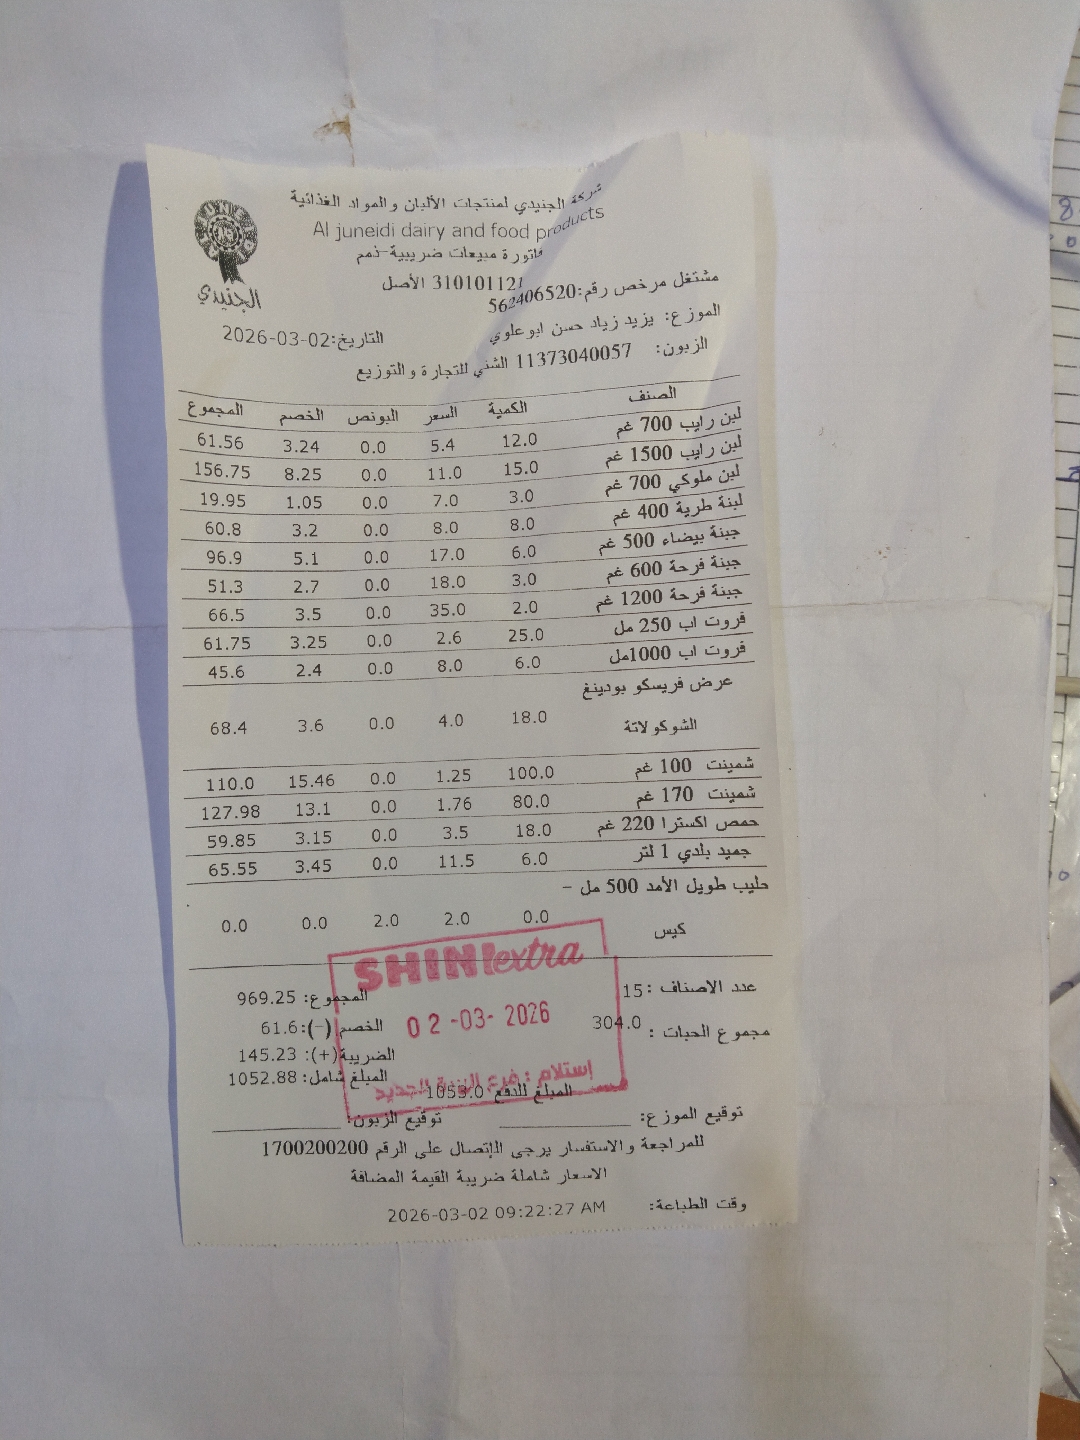 شركة الجنيدي لمنتجات الألبان والمواد الغذائية
Al juneidi dairy and food products
فاتورة مبيعات ضريبية-ذمم
الجنيدي
310101121 الأصل
مشتغل مرخص رقم:562406520
الموزع: يزيد زياد حسن ابوعلوي
التاريخ:2026-03-02
الزبون: 11373040057 الشني للتجارة والتوزيع
الصنف الكمية السعر البونص الخصم المجموع
لبن رايب 700 غم 12.0 5.4 0.0 3.24 61.56
لبن رايب 1500 غم 15.0 11.0 0.0 8.25 156.75
لبن ملوكي 700 غم 3.0 7.0 0.0 1.05 19.95
لبنة طرية 400 غم 8.0 8.0 0.0 3.2 60.8
جبنة بيضاء 500 غم 6.0 17.0 0.0 5.1 96.9
جبنة فرحة 600 غم 3.0 18.0 0.0 2.7 51.3
جبنة فرحة 1200 غم 2.0 35.0 0.0 3.5 66.5
فروت اب 250 مل 25.0 2.6 0.0 3.25 61.75
فروت اب 1000مل 6.0 8.0 0.0 2.4 45.6
عرض فريسكو بودينغ
الشوكولاتة 18.0 4.0 0.0 3.6 68.4
شمينت 100 غم 100.0 1.25 0.0 15.46 110.0
شمينت 170 غم 80.0 1.76 0.0 13.1 127.98
حمص اكسترا 220 غم 18.0 3.5 0.0 3.15 59.85
جميد بلدي 1 لتر 6.0 11.5 0.0 3.45 65.55
حليب طويل الأمد 500 مل -
كيس 0.0 2.0 2.0 0.0 0.0
SHINI extra
عدد الاصناف :15
المجموع: 969.25
02-03-2026
مجموع الحبات : 304.0
الخصم(-):61.6
الضريبة(+): 145.23
المبلغ شامل: 1052.88
إستلام : فرع
الجديد
المبلغ للدفع 1053.0
توقيع الموزع:
توقيع الزبون:
للمراجعة والاستفسار يرجى الإتصال على الرقم 1700200200
الاسعار شاملة ضريبة القيمة المضافة
وقت الطباعة: 2026-03-02 09:22:27 AM